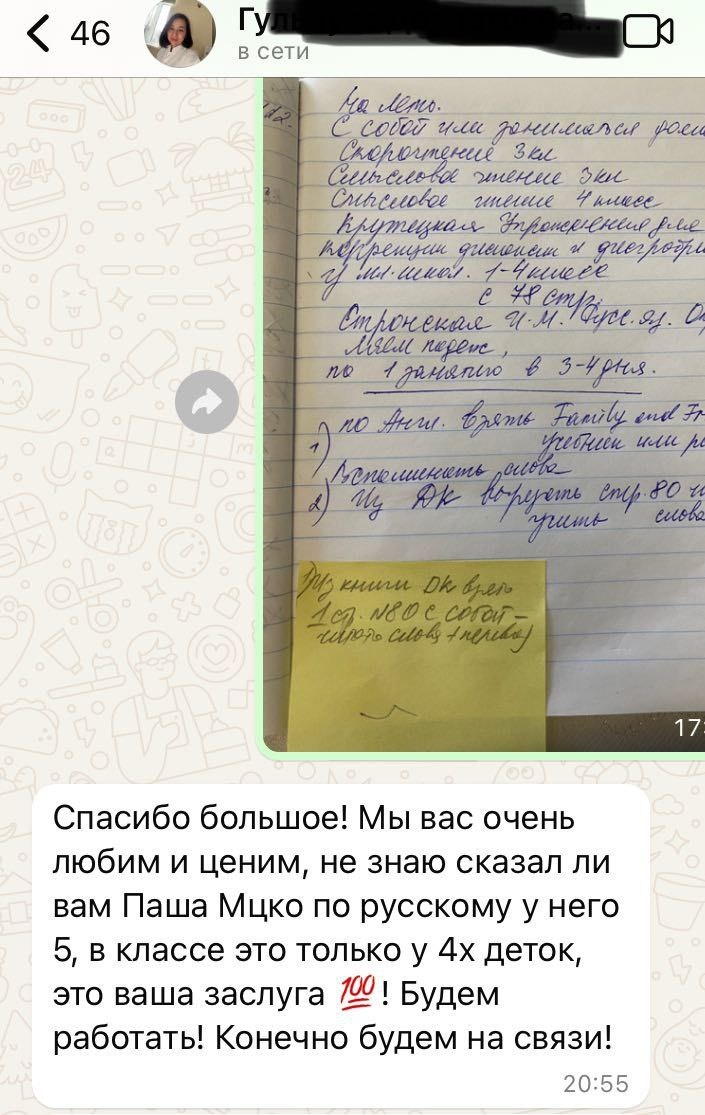 46
Гуль
в сети
На лето.
С собой или заниматься дома
Скорочтение 3кл
Смысловое чтение 3кл
Смысловое чтение 4 класс
Крутецкая Упражнения для
коррекции дислексии и дисграфии
у мл. школ. 1-4 класс
с 78 стр.
Стронская И.М. Русс. яз. Оп
ляем падеж,
по 1 занятию в 3-4 дня.
1) по Англ. взять Family and Fr
учебник или р
Вспоминать слова
2) Из ДК вырезать стр. 80 и
учить слова
Из книги ДК взять
1 стр. №80 с собой –
читать слова + перевод
17:
Спасибо большое! Мы вас очень
любим и ценим, не знаю сказал ли
вам Паша Мцко по русскому у него
5, в классе это только у 4х деток,
это ваша заслуга 💯! Будем
работать! Конечно будем на связи!
20:55